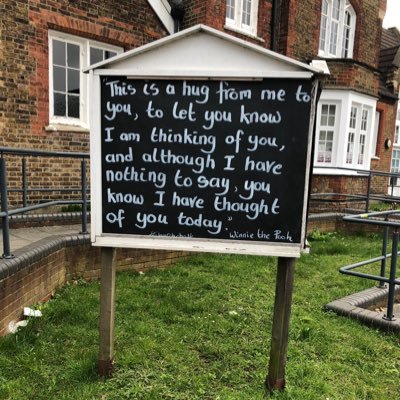 "This is a hug from me to
you, to let you know
I am thinking of you,
and although I have
nothing to say, you
know I have thought
of you today."
Winnie the Pooh